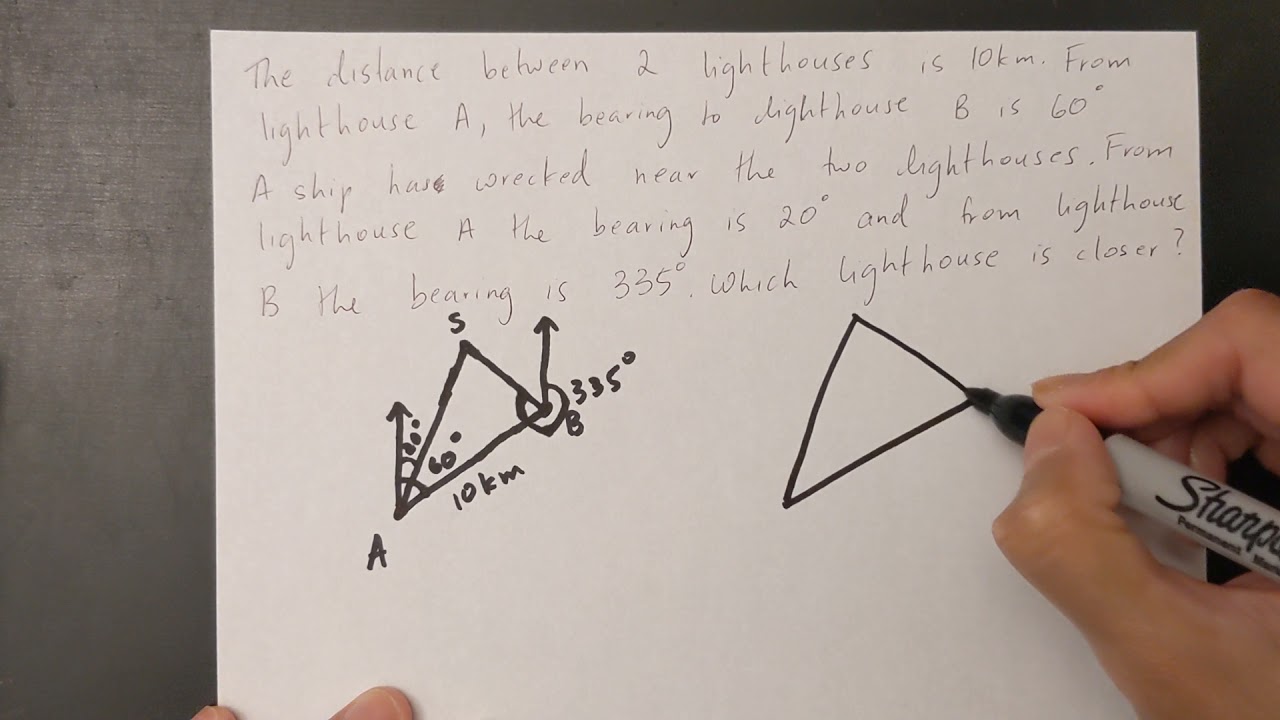 The distance between 2 lighthouses is 10km. From
lighthouse A, the bearing to lighthouse B is 60°
A ship has wrecked near the two lighthouses. From
lighthouse A the bearing is 20° and from lighthouse
B the bearing is 335°. Which lighthouse is closer?
S
335°
B
60°
10km
A
Sharpie
Permanent